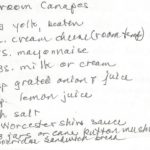 room Canapes
g yolk, beaten
z. cream cheese (room temp)
s. mayonnaise
bs. milk or cream
p grated onion & juice
p. lemon juice
h salt
Worcestershire sauce
jars or cans button mush
sandwich bread